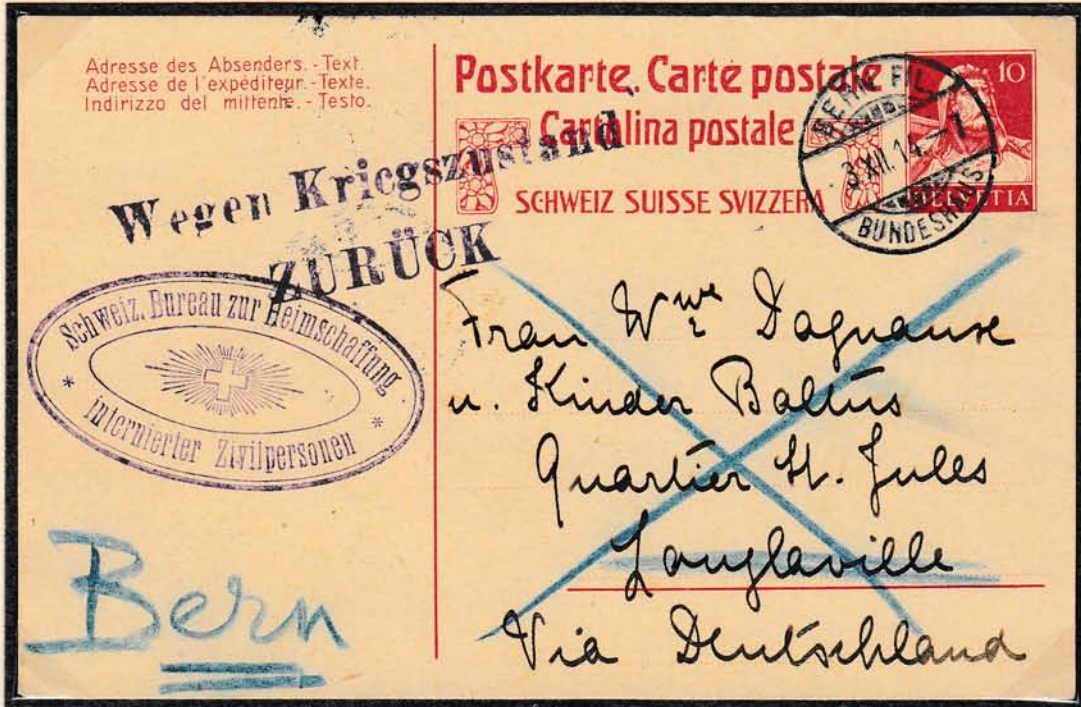 Adresse des Absenders. - Text.
Adresse de l'expéditeur. - Texte.
Indirizzo del mittente. - Testo.
Postkarte. Carte postale
Cartolina postale
SCHWEIZ SUISSE SVIZZERA
10
HELVETIA
BERN FIL.
3.XII.14.
BUNDESHAUS
Wegen Kriegszustand
ZURÜCK
Schweiz. Bureau zur Heimschaffung
* internierter Zivilpersonen *
Frau Wwe
u. Kinder Baltus
Quartier St. Jules
Longlaville
Via Deutschland
Bern